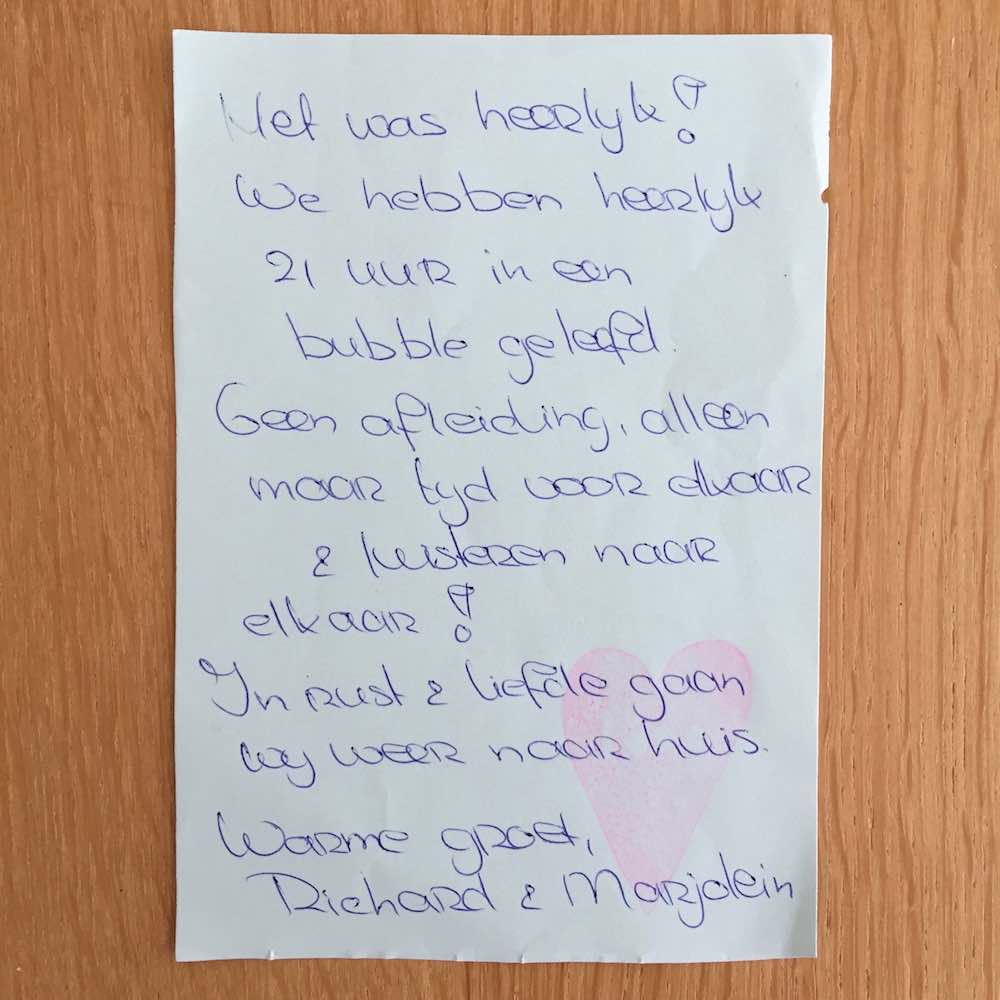 Het was heerlyk!
We hebben heerlyk
21 uur in een
bubble geleefd.
Geen afleiding, alleen
maar tyd voor elkaar
& luisteren naar
elkaar!
In rust & liefde gaan
wy weer naar huis.
Warme groet,
Richard & Marjolein